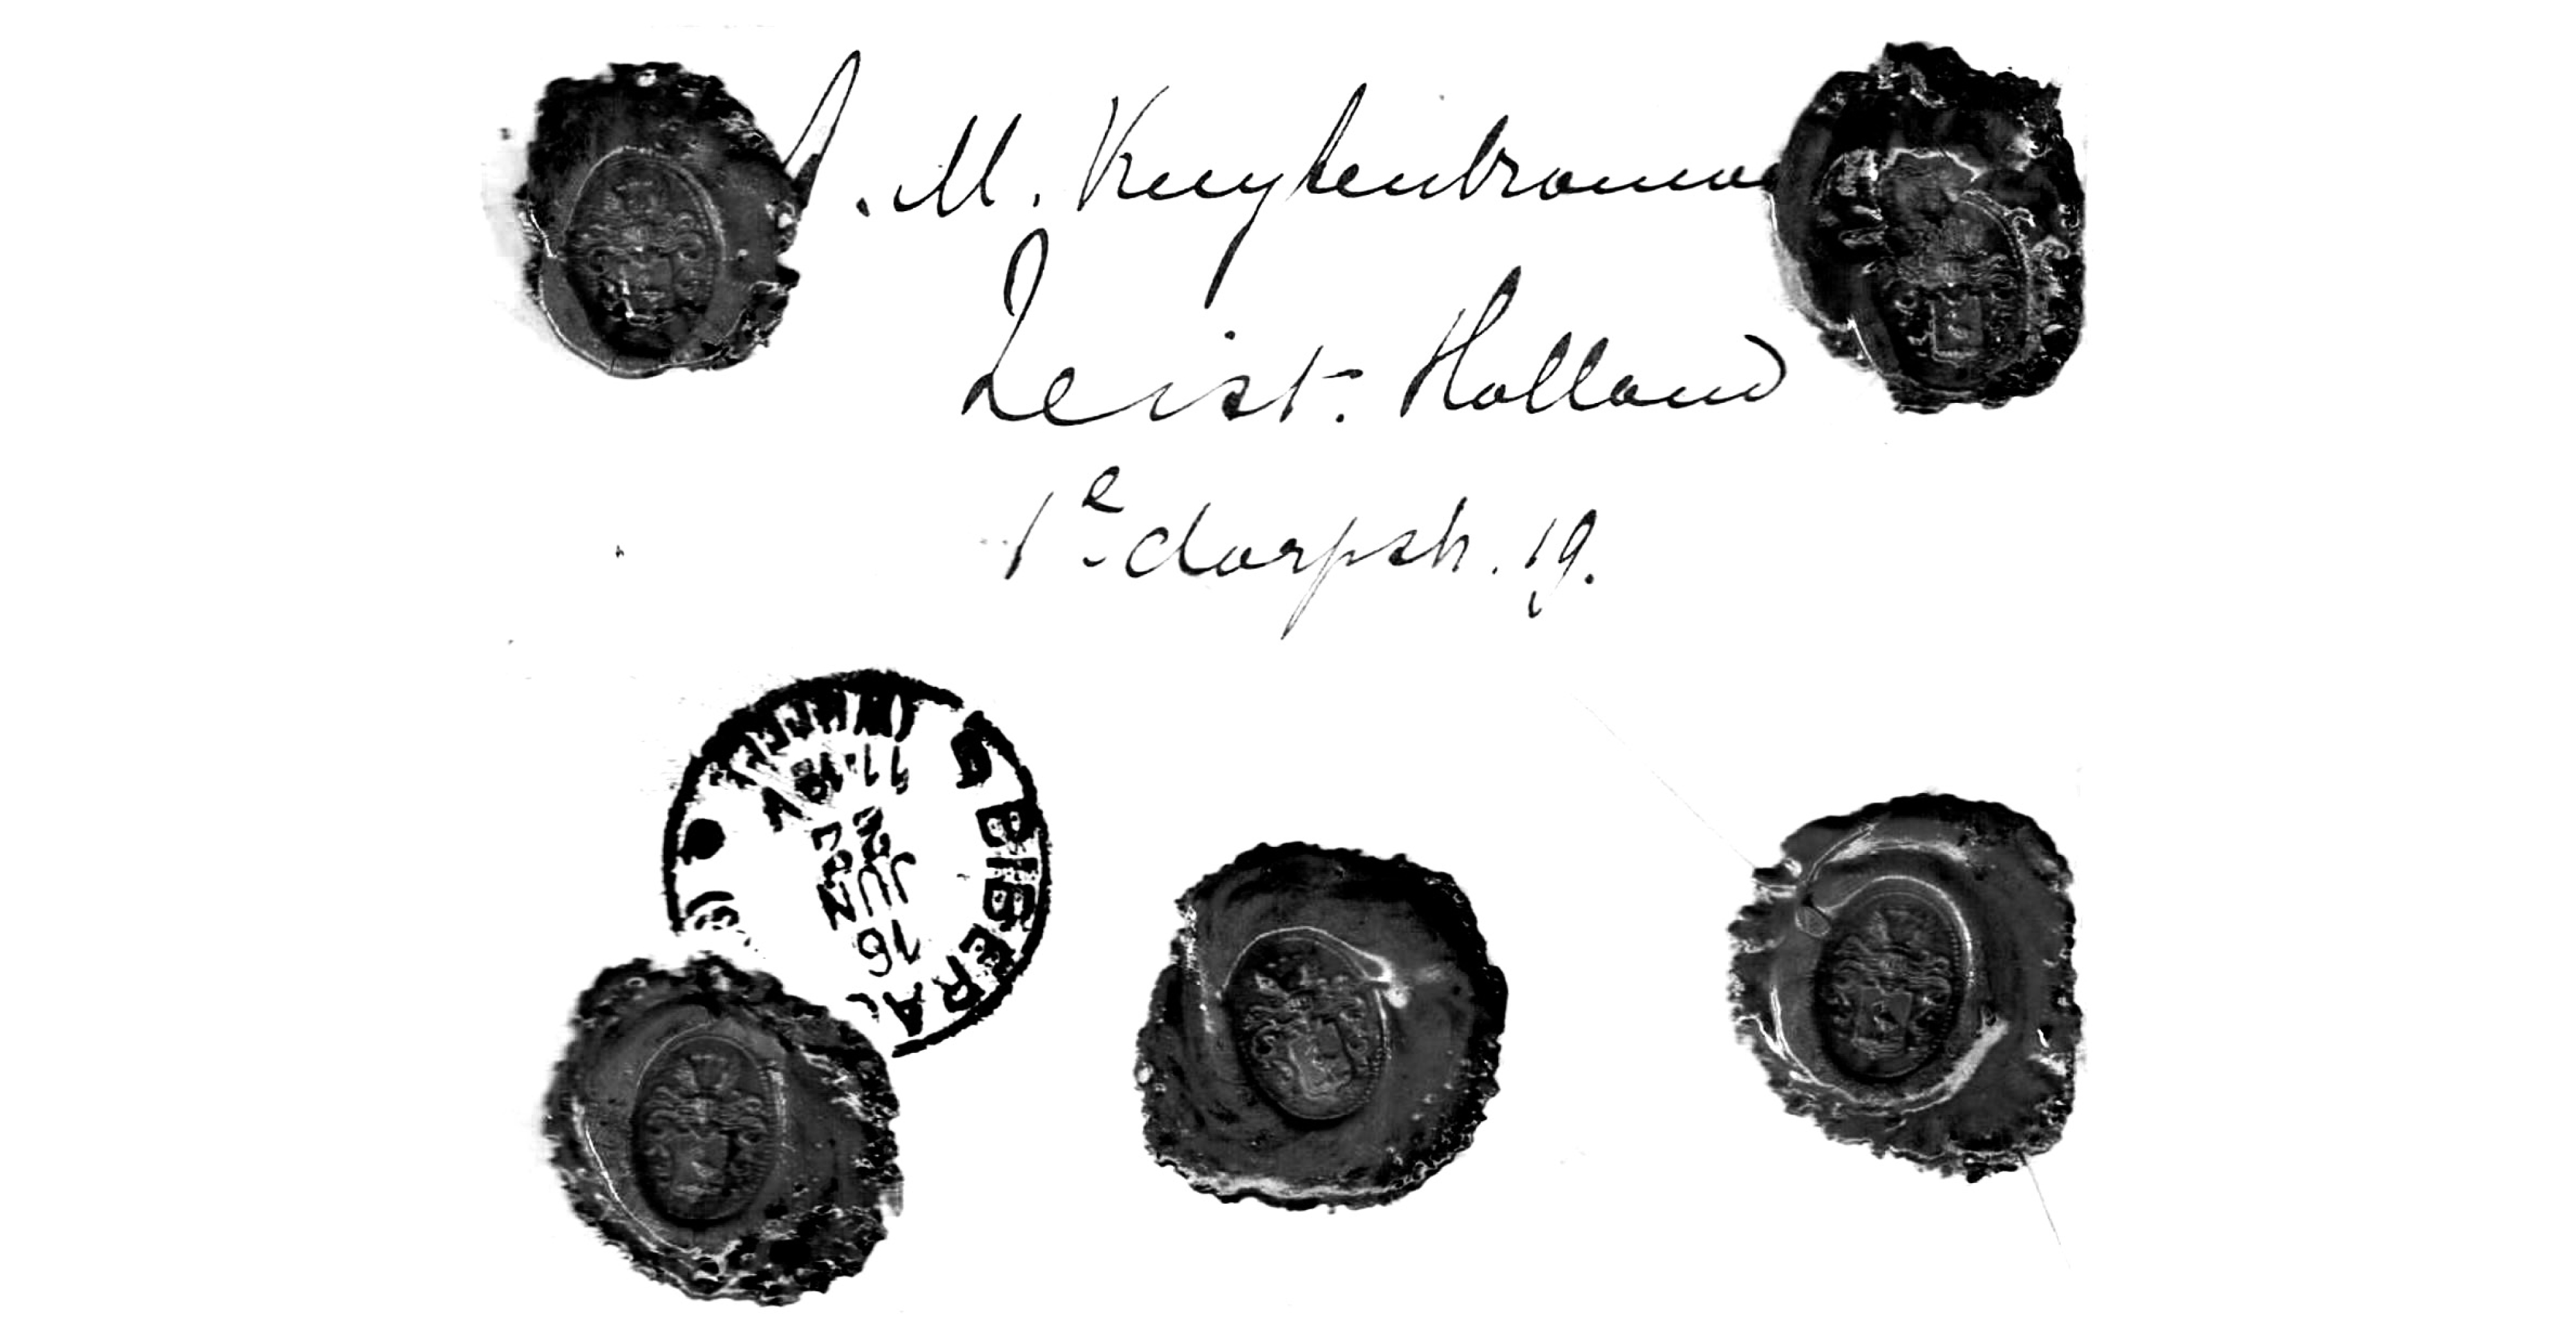 . M. Kuytenbrouwer
Zeist. Holland
1e dorpsh. 19.
BIBERAC
16
JUL
11-12 V